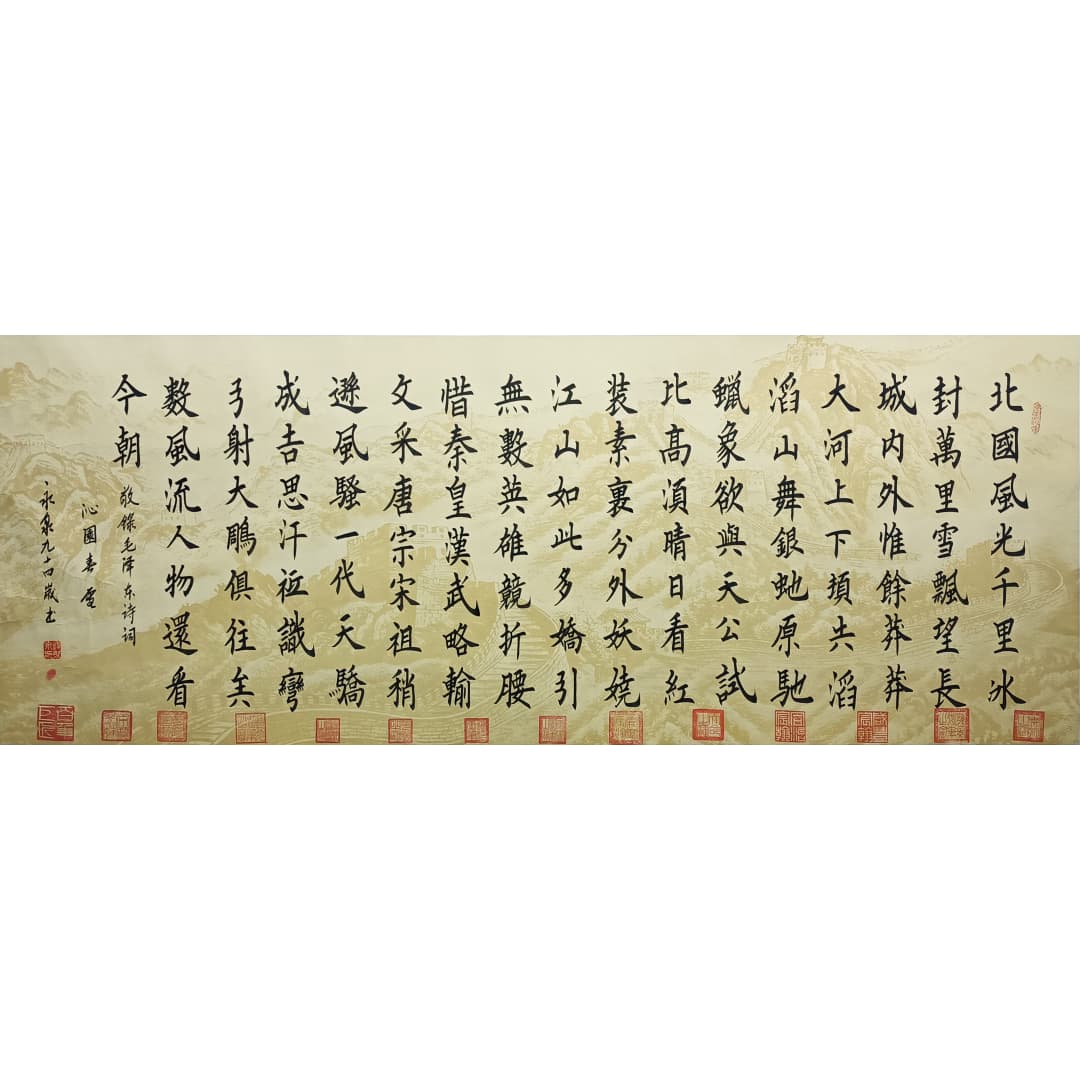 北國風光千里冰
封萬里雪飄望長
城内外惟餘莽莽
大河上下頃失滔
滔山舞銀虵原馳
蠟象欲與天公試
比高湏晴日看紅
装素裹分外妖嬈
江山如此多嬌引
無數英雄競折腰
惜秦皇漢武略輸
文采唐宗宋祖稍
遜風騷一代天驕
成吉思汗祗識彎
弓射大鵰俱往矣
數風流人物還看
今朝
敬錄毛泽东诗词
沁園春雪
永泉九十四歲书